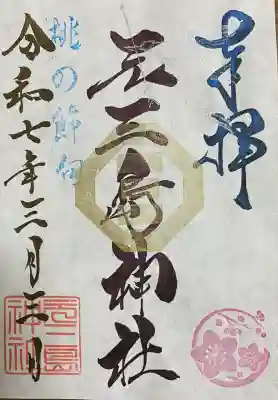 奉拝
元三島神社
桃の節句
令和七年三月三日
元三島
神社